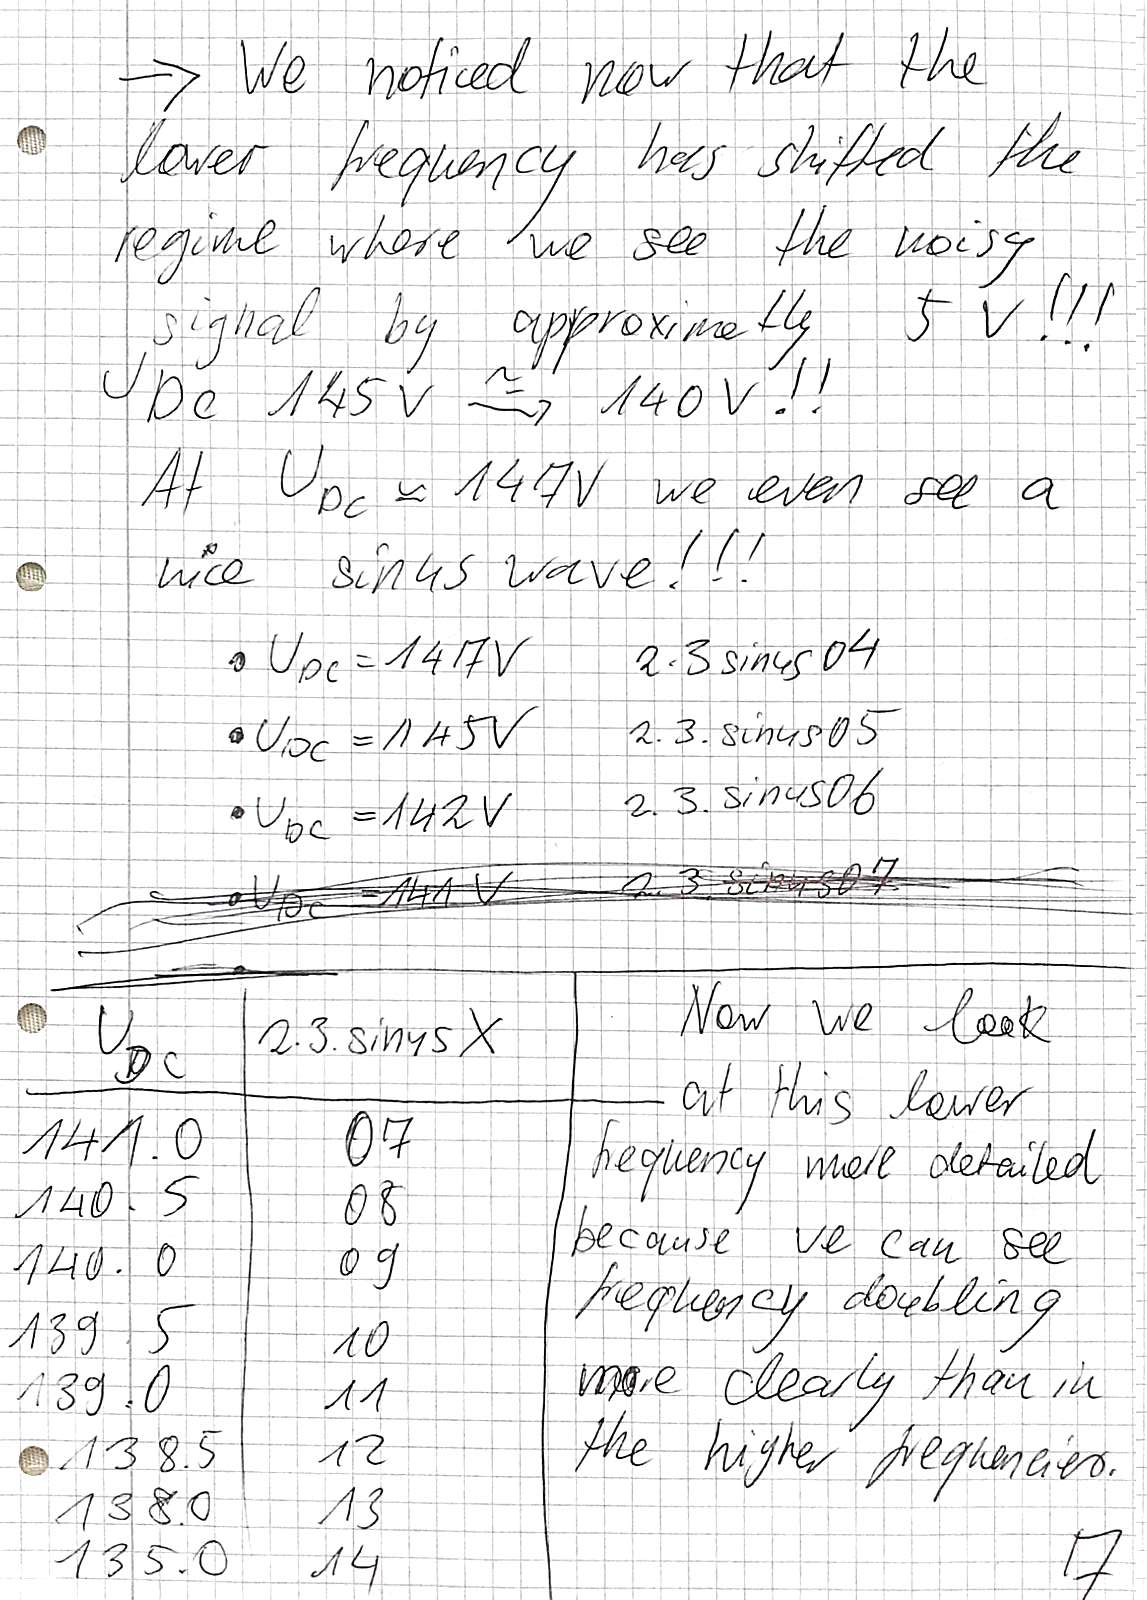 → We noticed now that the
lower frequency has shifted the
regime where we see the noisy
signal by approximetly 5 V!!!
U_DC 145V ≃→ 140V!!
At U_DC ≃ 147V we even see a
nice sinus wave!!!
• U_DC = 147V 2.3 sinus04
• U_DC = 145V 2.3. sinus05
• U_DC = 142V 2.3. sinus06
• U_DC = 141V 2.3 sinus07
U_DC 2.3.sinusX
141.0 07
140.5 08
140.0 09
139.5 10
139.0 11
138.5 12
138.0 13
135.0 14
Now we look
at this lower
frequency more detailed
because we can see
frequency doubling
more clearly than in
the higher frequencies.
17